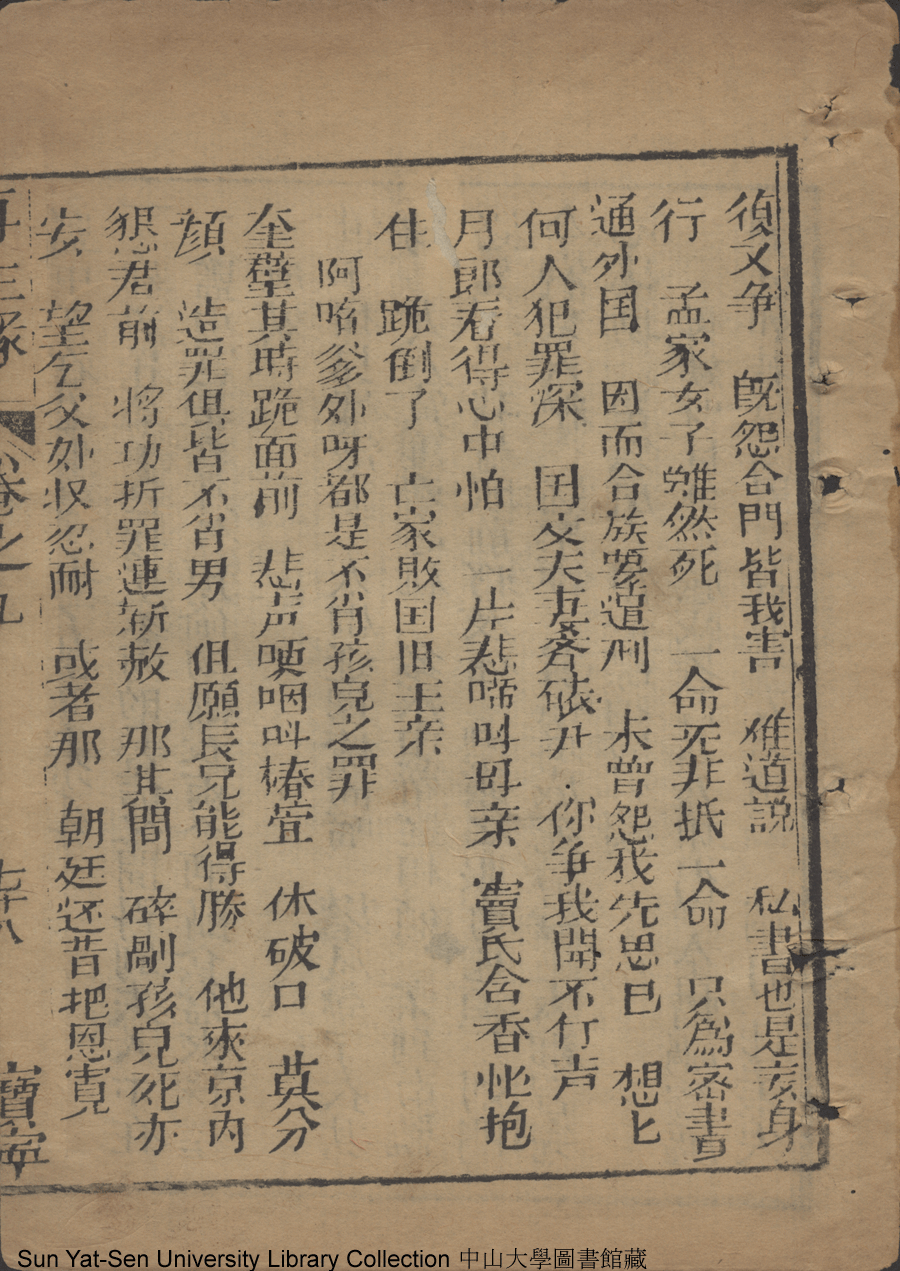 復又争 既怨合門皆我害 难道説 私書也是亥身
行 孟家女子雖然死 一命死非抵一命 只為密書
通外国 因而合族要遭刑 未曾怨我先思已 想匕
何人犯罪深 国丈夫妻各砍 你争我閙不行声
月郎看得心中怕 一片悲啼叫母亲 竇氏含香忙抱
住 跪倒了 亡家敗国旧王亲
阿唷爹外呀都是不肖孩兒之罪
奎璧其時跪面前 悲声哽咽叫椿萱 休破口 莫分
顔 造罪俱皆不肖男 但願長兄能得勝 他來京内
懇君前 将功折罪連斩赦 那其間 碎剮孩兒死亦
安 望乞父外収忍耐 或者那 朝廷还昔把恩寛
再生缘 卷之九 七十八 寶寧
Sun Yat-Sen University Library Collection 中山大學圖書館藏